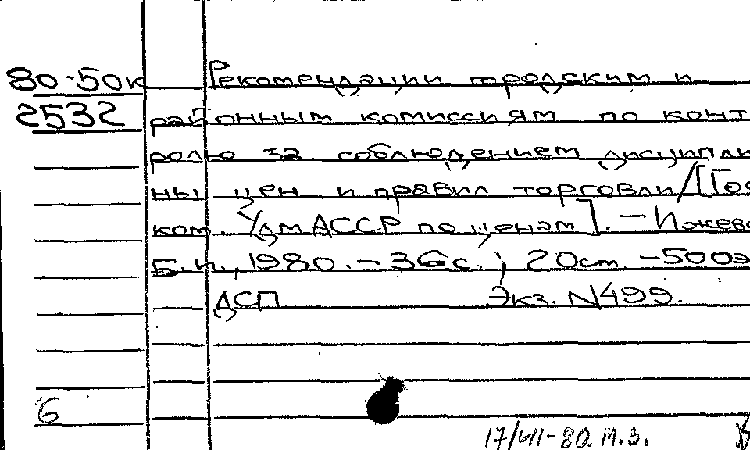 80-50к Рекомендации городским и
2532 районным комиссиям по конт
ролю за соблюдением дисципли
ны цен и правил торговли/[Гос
ком. УдмАССР по ценам]. — Ижевс
Б.и., 1980. - 36с.; 20см. - 500э
ДСП Экз. N499.
6
17/VII-80. М.З.